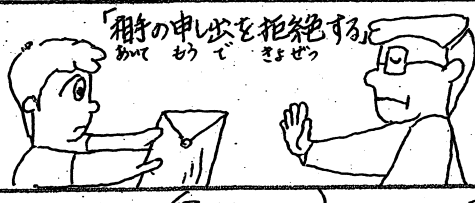 「相手の申し出を拒絶する」
あいて もう で きょぜつ